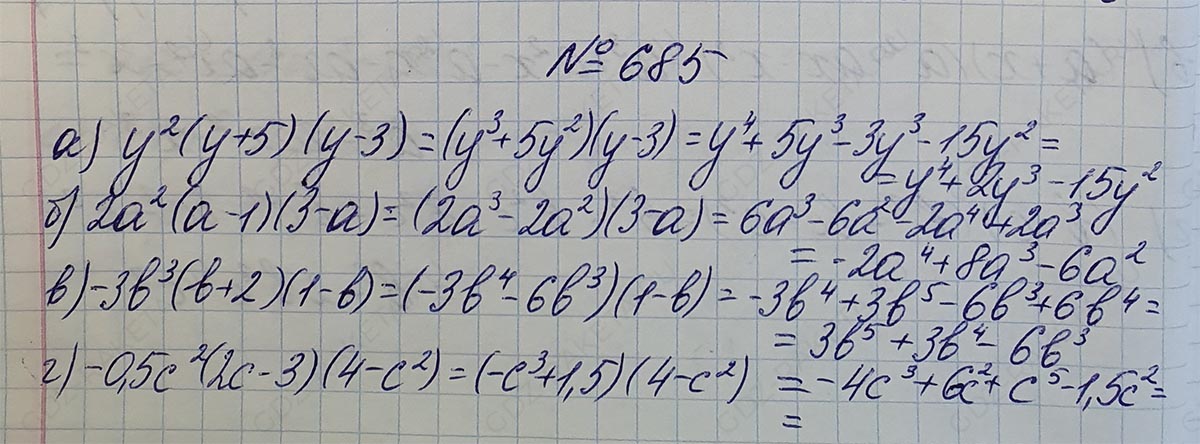 № 685
а) y²(y+5)(y-3)=(y³+5y²)(y-3)=y⁴+5y³-3y³-15y²=
=y⁴+2y³-15y²
б) 2a²(a-1)(3-a)=(2a³-2a²)(3-a)=6a³-6a²-2a⁴+2a³
=-2a⁴+8a³-6a²
в) -3b³(b+2)(1-b)=(-3b⁴-6b³)(1-b)=-3b⁴+3b⁵-6b³+6b⁴=
=3b⁵+3b⁴-6b³
г) -0,5c²(2c-3)(4-c²)=(-c³+1,5)(4-c²) =-4c³+6c²+c⁵-1,5c²=
=